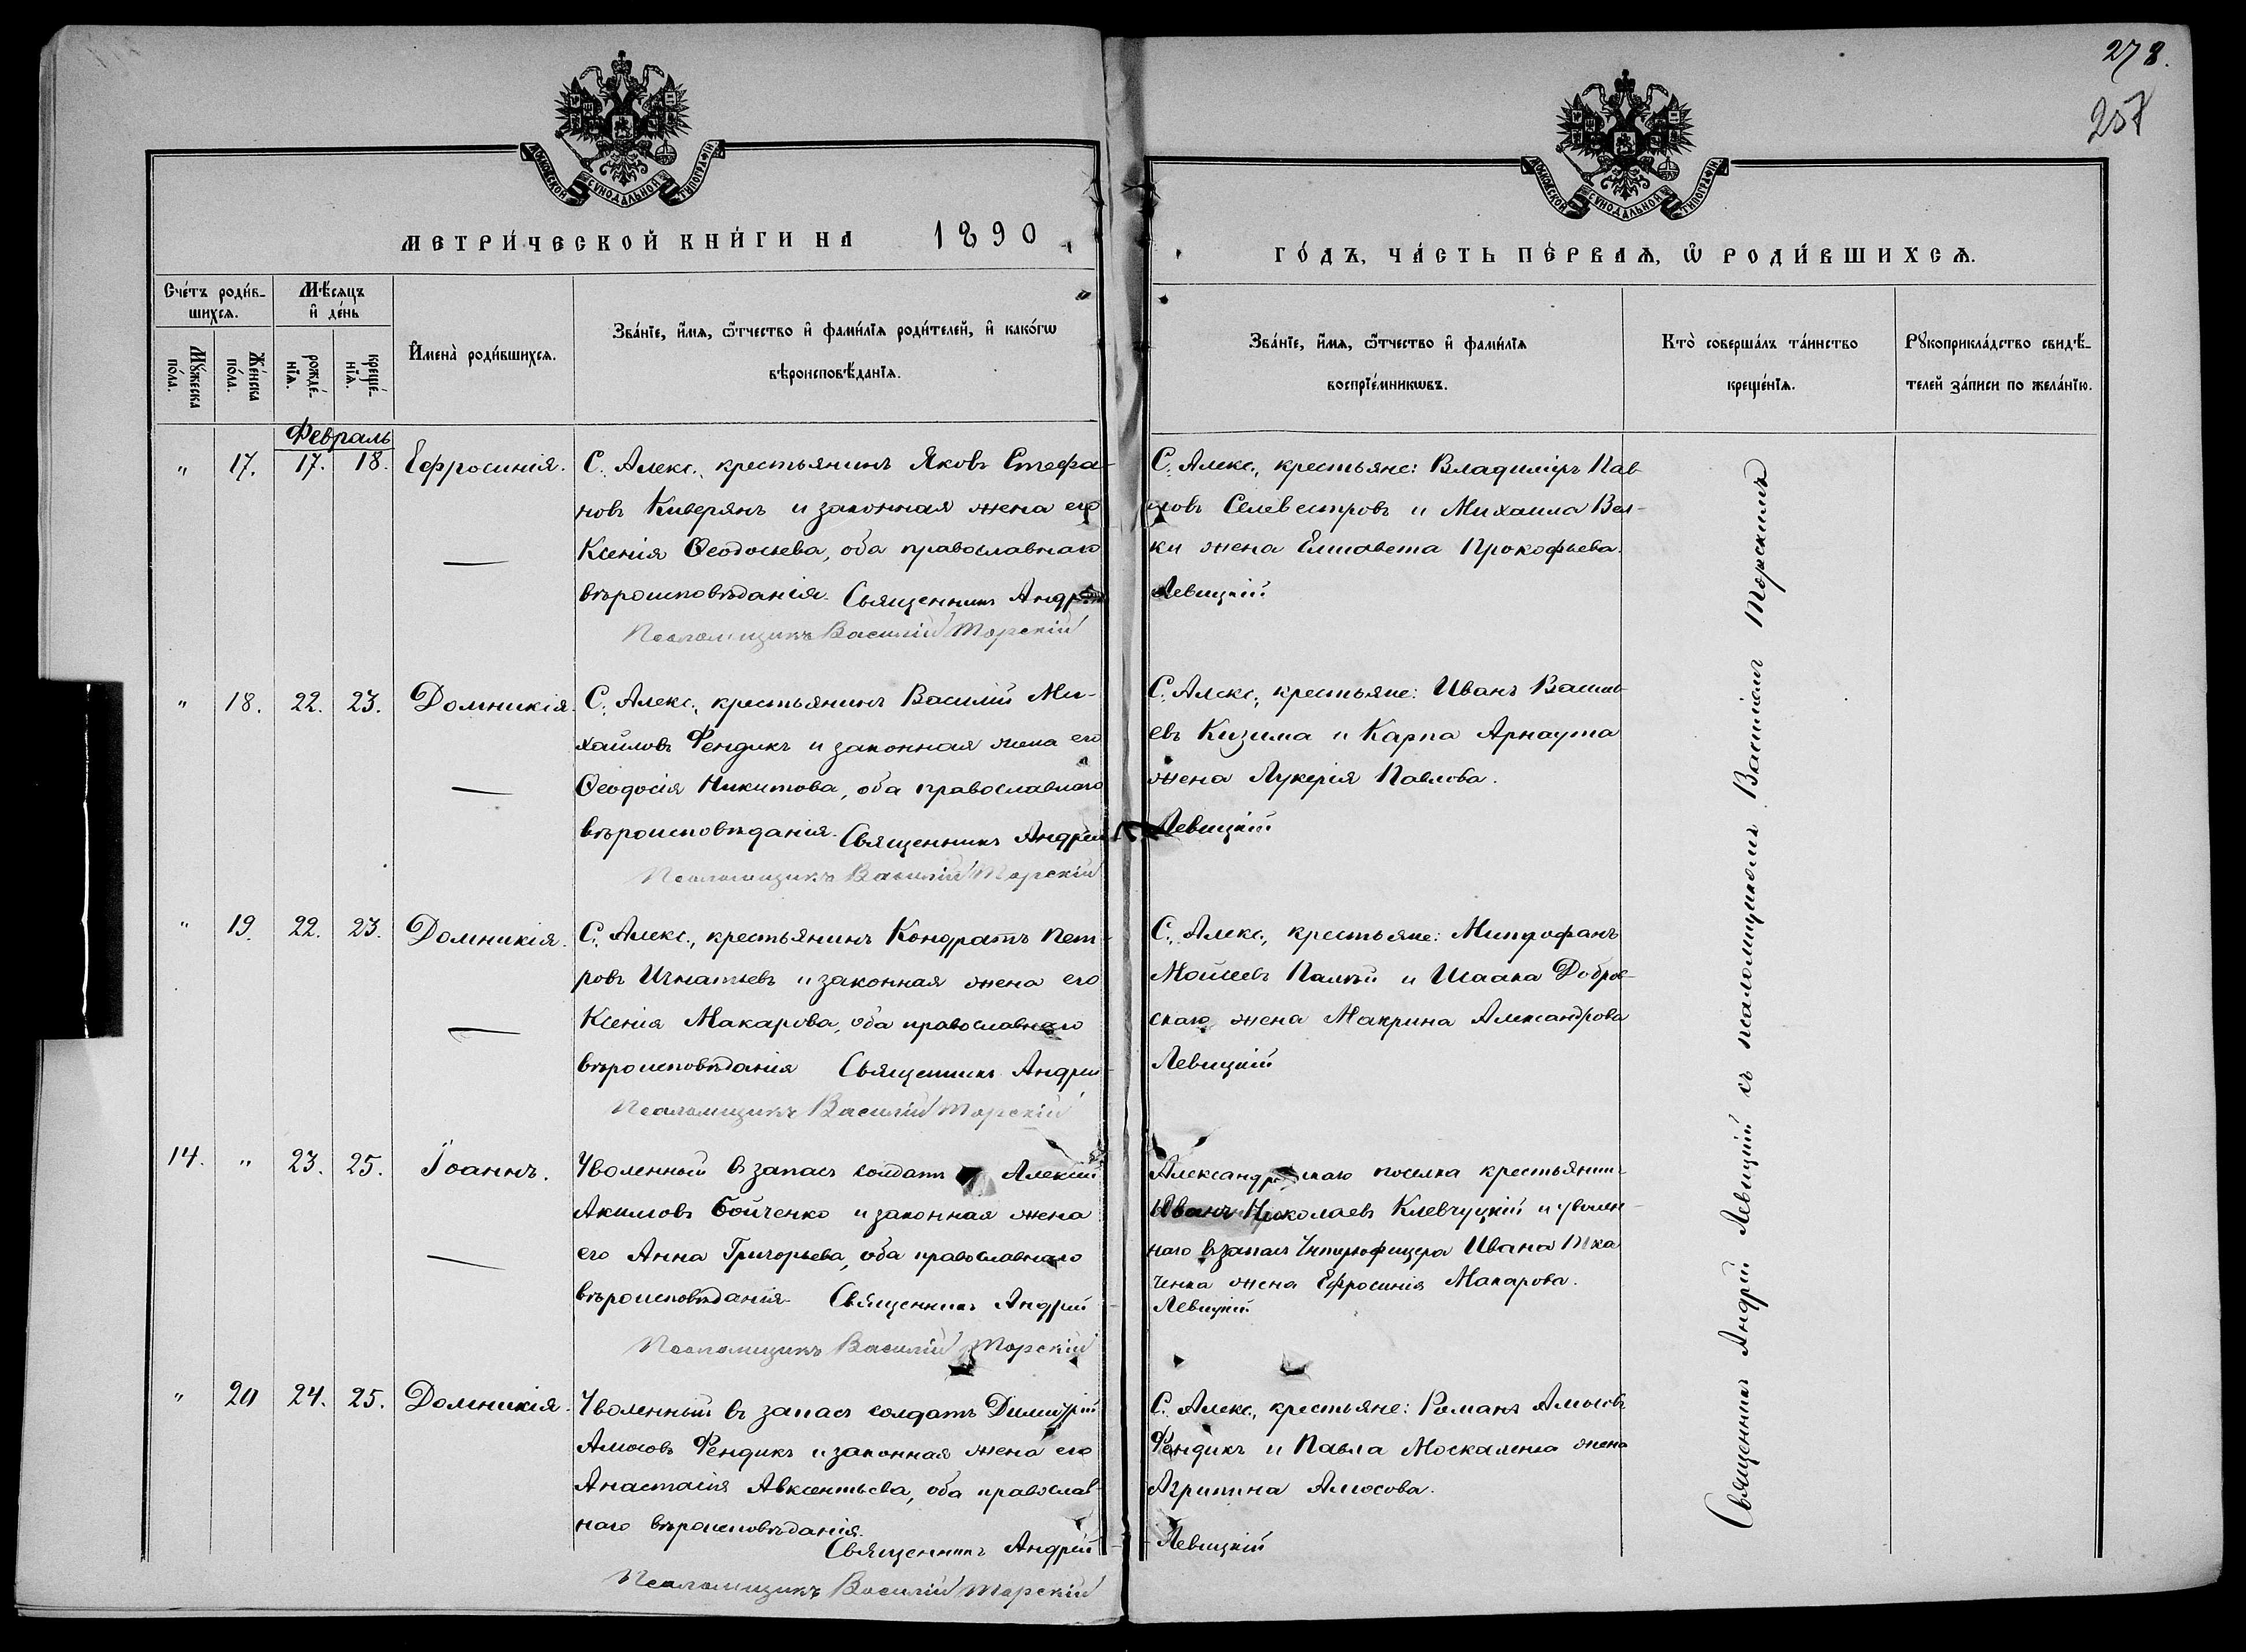 278.
257
МОСКОВСКОЙ СѴНОДАЛЬНОЙ ТИПОГРАФІИ
МОСКОВСКОЙ СѴНОДАЛЬНОЙ ТИПОГРАФІИ
МЕТРИ́ЧЕСКОЙ КНИ́ГИ НА 1890
ГО́ДЪ, ЧА́СТЬ ПЕ́РВАѦ, Ѽ РОДИ́ВШИХСѦ.
Сче́тъ роди́в-
шихсѧ.
Мѣ́сѧцъ
и҆ де́нь
Мꙋ́жеска
по́ла.
Же́нска
по́ла.
рожде́-
нїѧ.
креще́-
нїѧ.
И҆мена̀ роди́вшихсѧ.
Зва́нїе, и҆́мѧ, ѻ҆́тчество и҆ фами́лїѧ роди́телей, и҆ како́гѡ
вѣроисповѣ́данїѧ.
Зва́нїе, и҆́мѧ, ѻ҆́тчество и҆ фами́лїѧ
воспрїе́мникѡвъ.
Кто̀ соверша́лъ та́инство
креще́нїѧ.
Рꙋкоприкла́дство свидѣ́-
телей за́писи по жела́нїю.
Февраль
" 17. 17. 18. Ефросинія.
С. Алекс., крестьянинъ Яковъ Стефа-
новъ Киверянъ и законная жена его
Ксенія Ѳеодосіева, оба православнаго
вѣроисповѣданія. Священникъ Андрей
Псаломщикъ Василій Торскій
С. Алекс., крестьяне: Владиміръ Пав-
ловъ Селевестровъ и Михаила Вел-
ки жена Елисавета Прокофьева.
Левицкій
" 18. 22. 23. Домникія.
С. Алекс., крестьянинъ Василій Ми-
хайловъ Фендикъ и законная жена его
Ѳеодосія Никитова, оба православнаго
вѣроисповѣданія. Священникъ Андрей
Псаломщикъ Василій Торскій
С. Алекс., крестьяне: Иванъ Василь-
евъ Кизима и Карпа Арнаута
жена Лукерія Павлова.
Левицкій
" 19. 22. 23. Домникія.
С. Алекс., крестьянинъ Кондратъ Пет-
ровъ Игнатьевъ и законная жена его
Ксенія Макарова, оба православнаго
вѣроисповѣданія Священникъ Андрей
Псаломщикъ Василій Торскій
С. Алекс., крестьяне: Митрофанъ
Моисеевъ Палѣй и Исаака Добров-
скаго жена Макрина Александрова
Левицкій
14. " 23. 25. Іоаннъ.
Уволенный въ запасъ солдатъ Алексій
Акимовъ Бойченко и законная жена
его Анна Григорьева, оба православнаго
вѣроисповѣданія Священникъ Андрей
Псаломщикъ Василій Торскій
Александровскаго поселка крестьянинъ
Иванъ Николаевъ Клевчуцкій и уволен-
наго въ запасъ Унтерофицера Ивана Тка
ченка жена Ефросинія Макарова.
Левицкій
" 20 24. 25. Домникія.
Уволенный въ запасъ солдатъ Димитрій
Амосовъ Фендикъ и законная жена его
Анастасія Авксентьева, оба православ-
наго вѣроисповѣданія.
Священникъ Андрей
Псаломщикъ Василій Торскій
С. Алекс., крестьяне: Романъ Амосовъ
Фендикъ и Павла Москаленка жена
Агрипина Амосова.
Левицкій
Священникъ Андрей Левицкій съ псаломщикомъ Василіемъ Торскимъ